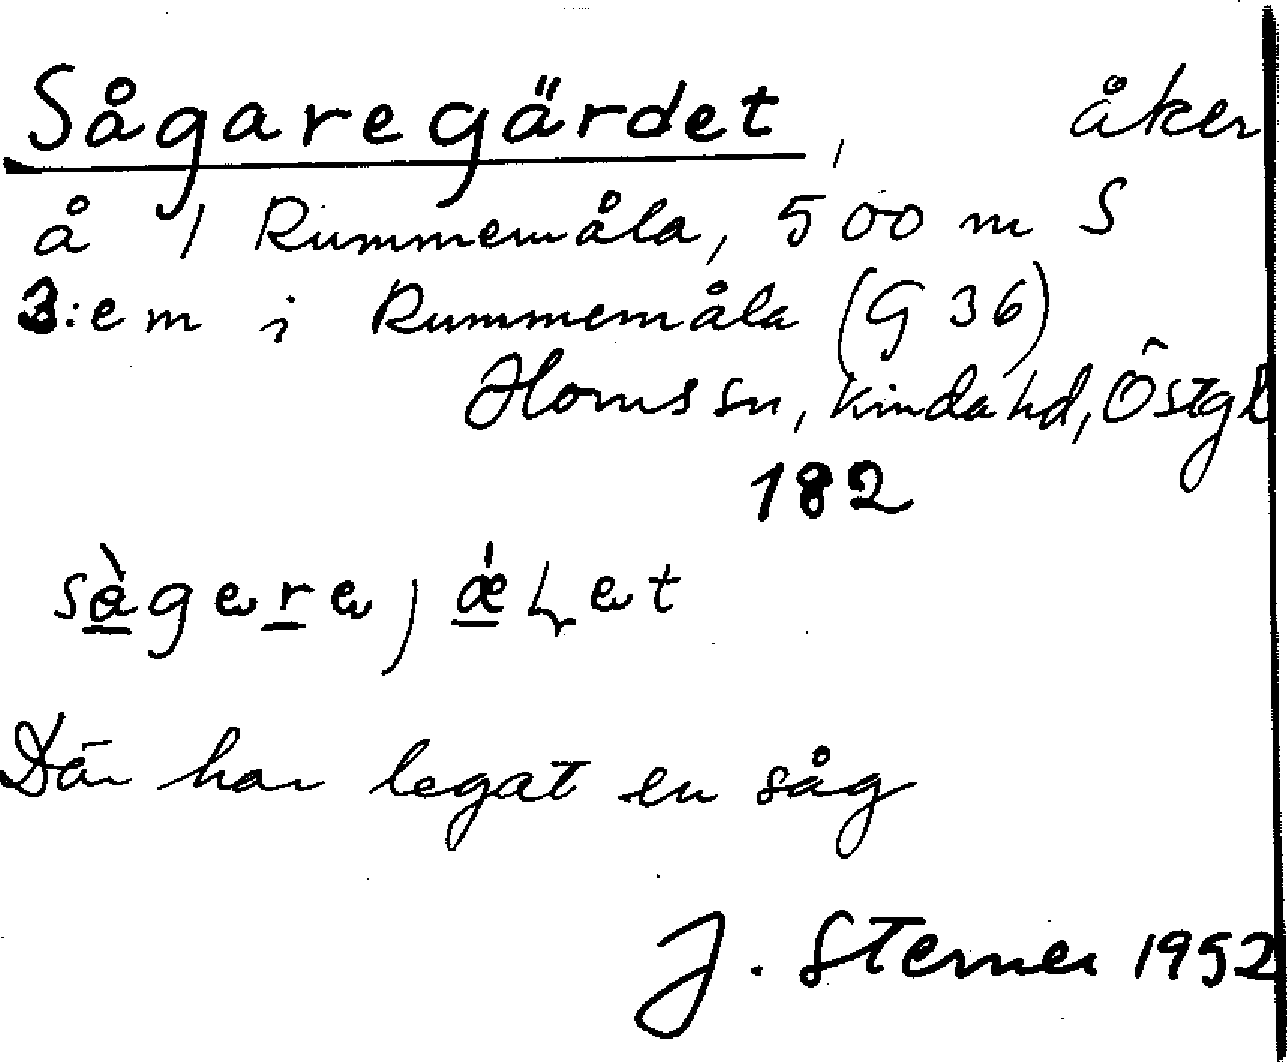 Sågaregärdet, åker
å 1 Rummemåla, 500 m S
3:em i Rummemåla (G 36)
Horns sn, Kinda hd, Östgl
182
Där har legat en såg
J. Sterner 1952